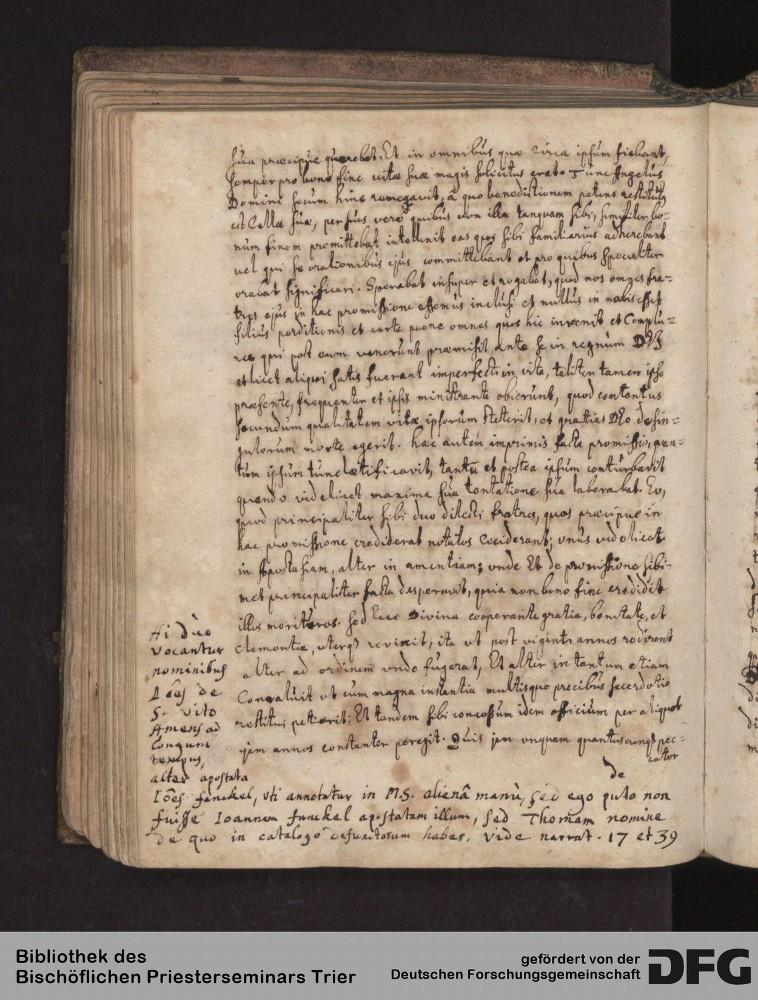 sua praecipue quaerebat. Et in omnibus quae circa ipsum fiebant,
semper pro bono fine vitae suae magis solicitus erat. Tunc Angelus
Domini secum hinc, a quo benedictionem petens restitutus
est Cellae suae, per suos vero quibus non illa tanquam sibi, similiter bo-
num finem promittebat intellexit eas quos sibi familiarius adhaerebant
vel qui se orationibus ejus committebant et pro quibus specialiter
orabat significari. Sperabat insuper et rogabat, quod nos omnes fra-
tres ejus in hac promissione essemus inclusi et nullus in nobis esset
filius perditionis et certe paene omnes quos hic invenit et Complu-
res qui post eum venerunt praemisit ante se in regnum DEI
et licet aliqui satis fuerant imperfecti in vita, taliter tamen ipso
praesente, frequenter et ipsis ministrante obierunt, quod contentus
secundum qualitatem vitae ipsorum steterit, et gratias DEO de sin-
gulorum morte egerit. haec autem imprimis facta promissio, quan-
tum ipsum tunc laetificavit, tantum et postea ipsum conturbavit
quando videlicet maxima sua tentatione sua laborabat. Eo,
quod principaliter sibi duo dilecti fratres, quos praecipue in
hac promissione crediderat notatos Ceciderant; unus videlicet
in Apostasiam, alter in amentiam; unde Et de promissione sibi-
met principaliter facta desperavit, quia non bono fine credidit
illos morituros. sed Ecce Divina cooperante gratia, bonitate, et
clementia, uterq3 revixit, ita ut post viginti annos rediret
alter ad ordinem unde fugerat, Et alter in tantum etiam
Convaluit ut cum magna instantia multisque precibus sacerdotio
restitui petierit: Et tandem sibi concessum idem officium per aliquot
jam annos constanter peregit. Quis jam unquam quantuscunq3 pec-
cator
de
Hi duo
vocantur
nominibus
Iões de
S. Vito
Amens ad
longum
tempus,
alter apostata
Iões fanckel, uti annotatur in M.S. alienâ manû, sed ego puto non
fuisse Ioannem fanckel apostatam illum, sed Thomam nomine
de quo in catalogo defunctorum habes. Vide narrat. 17 et 39
Bibliothek des
Bischöflichen Priesterseminars Trier
gefördert von der
Deutschen Forschungsgemeinschaft
DFG